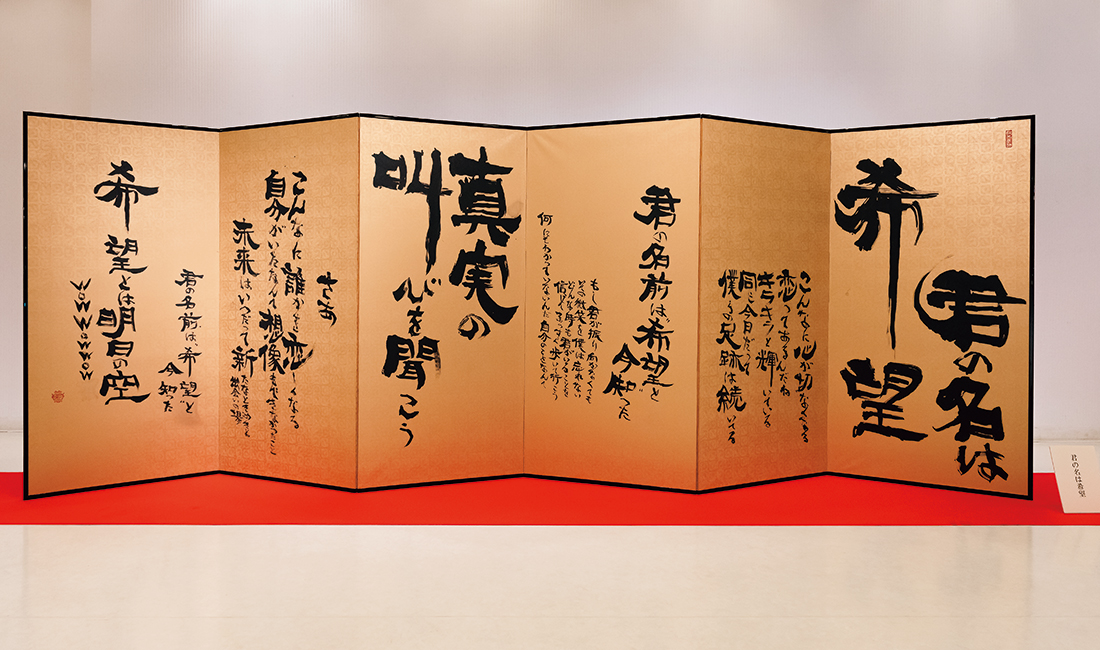 君の名は
希望
こんなに心が切なくなる
恋ってあるんだね
キラキラと輝いている
同じ今日だって
僕らの足跡は続いてる
君の名前は希望と
今知った
もし君が振り向かなくても
その微笑みを僕は忘れない
どんな時も君がいることを
信じてまっすぐ歩いて行こう
何にもわかっていないんだ自分のことなんて
真実の
叫びを聞こう
さあ
こんなに誰かを恋しくなる
自分がいたなんて想像もできなかったこと
未来はいつだって新たなときめきと
出会いの場
君の名前は、希望と
今知った
希望とは明日の空
WOW WOW WOW
君の名は希望